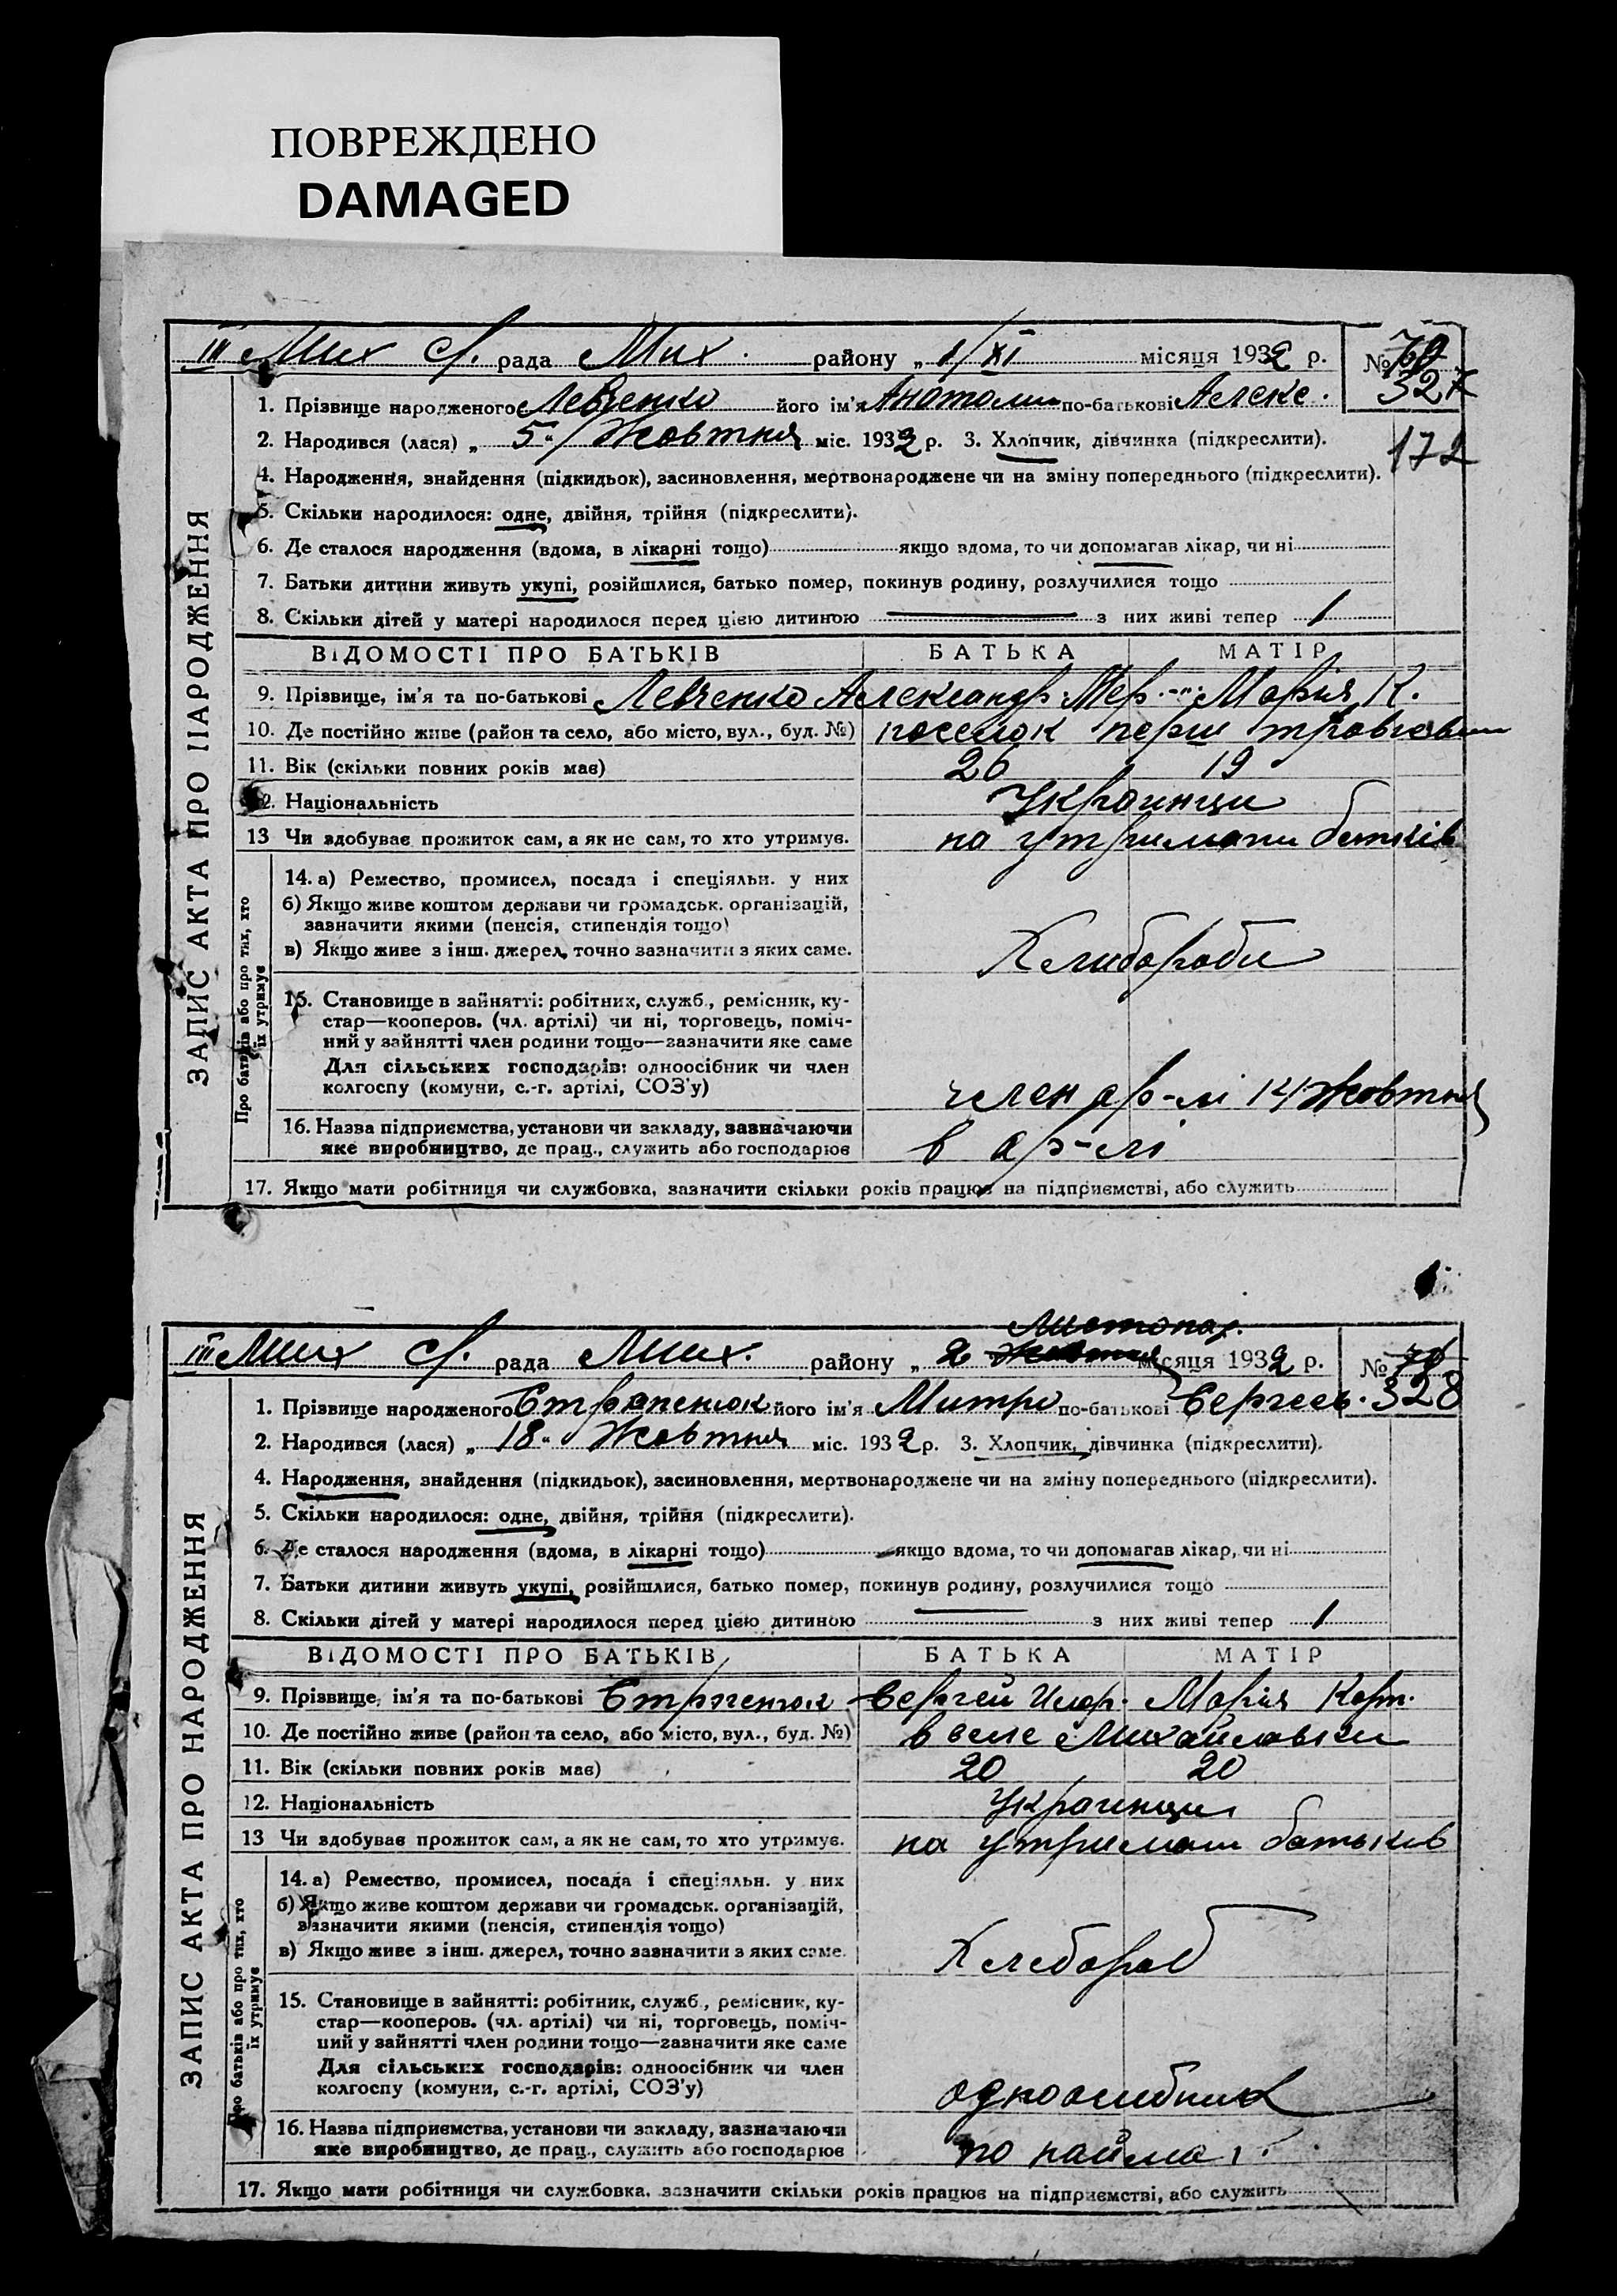 ПОВРЕЖДЕНО
DAMAGED
III Мих с/. рада Мих. району „ 1/XI місяця 1932 р. №
327
1. Прізвище народженого Левченко його ім'я Анатоли по-батькові Алекс.
2. Народився (лася) „ 5 " Жовтня міс. 1932 р. 3. Хлопчик, дівчинка (підкреслити).
172
4. Народження, знайдення (підкидьок), засиновлення, мертвонароджене чи на зміну попереднього (підкреслити).
5. Скільки народилося: одне, двійня, трійня (підкреслити).
6. Де сталося народження (вдома, в лікарні тощо) якщо вдома, то чи допомагав лікар, чи ні
7. Батьки дитини живуть укупі, розійшлися, батько помер, покинув родину, розлучилися тощо
8. Скільки дітей у матері народилося перед цією дитиною — з них живі тепер 1
ВІДОМОСТІ ПРО БАТЬКІВ БАТЬКА МАТІР
9. Прізвище, ім'я та по-батькові Левченко Александр Мер. -"- Мария К.
10. Де постійно живе (район та село, або місто, вул., буд. №) поселок перш
11. Вік (скільки повних років має) 26 19
12. Національність Украинци
13 Чи здобуває прожиток сам, а як не сам, то хто утримує. на утримани батьків
14. а) Ремество, промисел, посада і спеціяльн. у них
б) Якщо живе коштом держави чи громадськ. організацій,
зазначити якими (пенсія, стипендія тощо)
в) Якщо живе з інш. джерел, точно зазначити з яких саме. Хлибороби
15. Становище в зайнятті: робітник, служб., ремісник, ку-
стар—кооперов. (чл. артілі) чи ні, торговець, поміч-
ний у зайнятті член родини тощо—зазначити яке саме
Для сільських господарів: одноосібник чи член
колгоспу (комуни, с.-г. артілі, СОЗ'у) член ар-лі 14 Жовтня
16. Назва підприємства, установи чи закладу, зазначаючи
яке виробництво, де прац., служить або господарює в ар-лі
17. Якщо мати робітниця чи службовка, зазначити скільки років працює на підприємстві, або служить
ЗАПИС АКТА ПРО НАРОДЖЕННЯ
Про батьків або про тих, хто
їх утримує
Листопад.
III Мих с/. рада Мих. району „ 2 Жовтня місяця 1932 р. №
328
1. Прізвище народженого Страпенюк його ім'я Митро по-батькові Сергеев.
2. Народився (лася) „ 18 " Жовтня міс. 1932 р. 3. Хлопчик, дівчинка (підкреслити).
4. Народження, знайдення (підкидьок), засиновлення, мертвонароджене чи на зміну попереднього (підкреслити).
5. Скільки народилося: одне, двійня, трійня (підкреслити).
6. Де сталося народження (вдома, в лікарні тощо) якщо вдома, то чи допомагав лікар, чи ні
7. Батьки дитини живуть укупі, розійшлися, батько помер, покинув родину, розлучилися тощо
8. Скільки дітей у матері народилося перед цією дитиною — з них живі тепер 1
ВІДОМОСТІ ПРО БАТЬКІВ БАТЬКА МАТІР
9. Прізвище, ім'я та по-батькові Сергей Илар. Мария Карт.
10. Де постійно живе (район та село, або місто, вул., буд. №) в селе Михайловки
11. Вік (скільки повних років має) 20 20
12. Національність Украинци
13 Чи здобуває прожиток сам, а як не сам, то хто утримує. на утримани батьків
14. а) Ремество, промисел, посада і спеціяльн. у них
б) Якщо живе коштом держави чи громадськ. організацій,
зазначити якими (пенсія, стипендія тощо)
в) Якщо живе з інш. джерел, точно зазначити з яких саме. Хлебороб
15. Становище в зайнятті: робітник, служб., ремісник, ку-
стар—кооперов. (чл. артілі) чи ні, торговець, поміч-
ний у зайнятті член родини тощо—зазначити яке саме
Для сільських господарів: одноосібник чи член
колгоспу (комуни, с.-г. артілі, СОЗ'у) одноосибник
16. Назва підприємства, установи чи закладу, зазначаючи
яке виробництво, де прац., служить або господарює по найма
17. Якщо мати робітниця чи службовка, зазначити скільки років працює на підприємстві, або служить
ЗАПИС АКТА ПРО НАРОДЖЕННЯ
Про батьків або про тих, хто
їх утримує